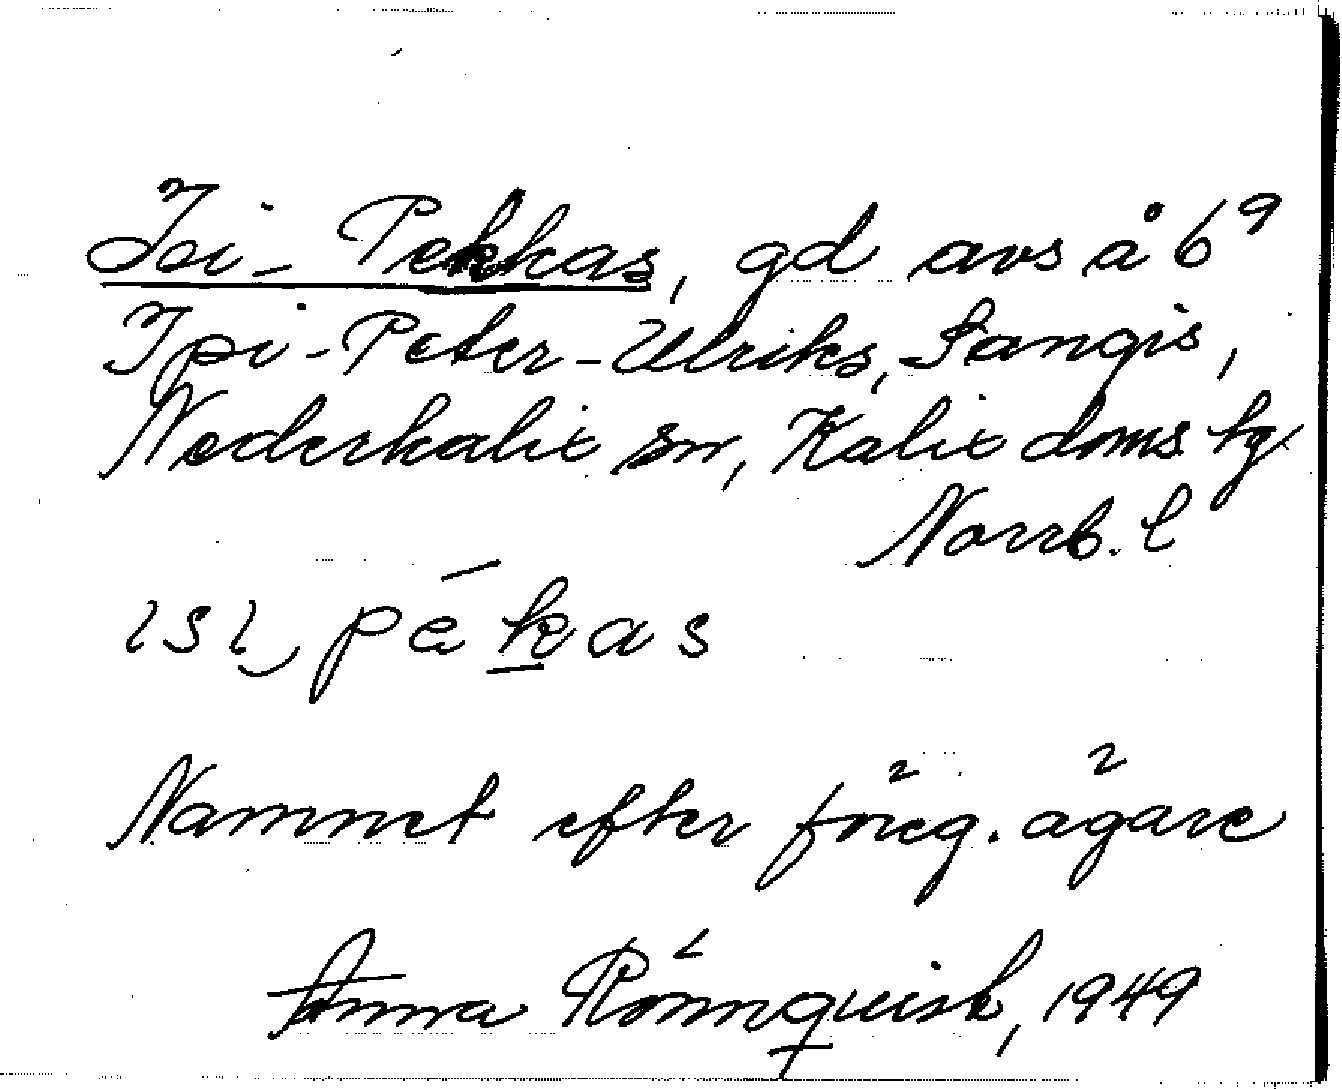 Isi-Pekkas, gd avs å 6⁹
Ipi-Peter-Ulriks, Sangis,
Nederkalix sn, Kalix doms hg
Norrb. l
ɩsɩ pekas
Namnet efter föreg. ägare
Anna Rönnquist, 1949